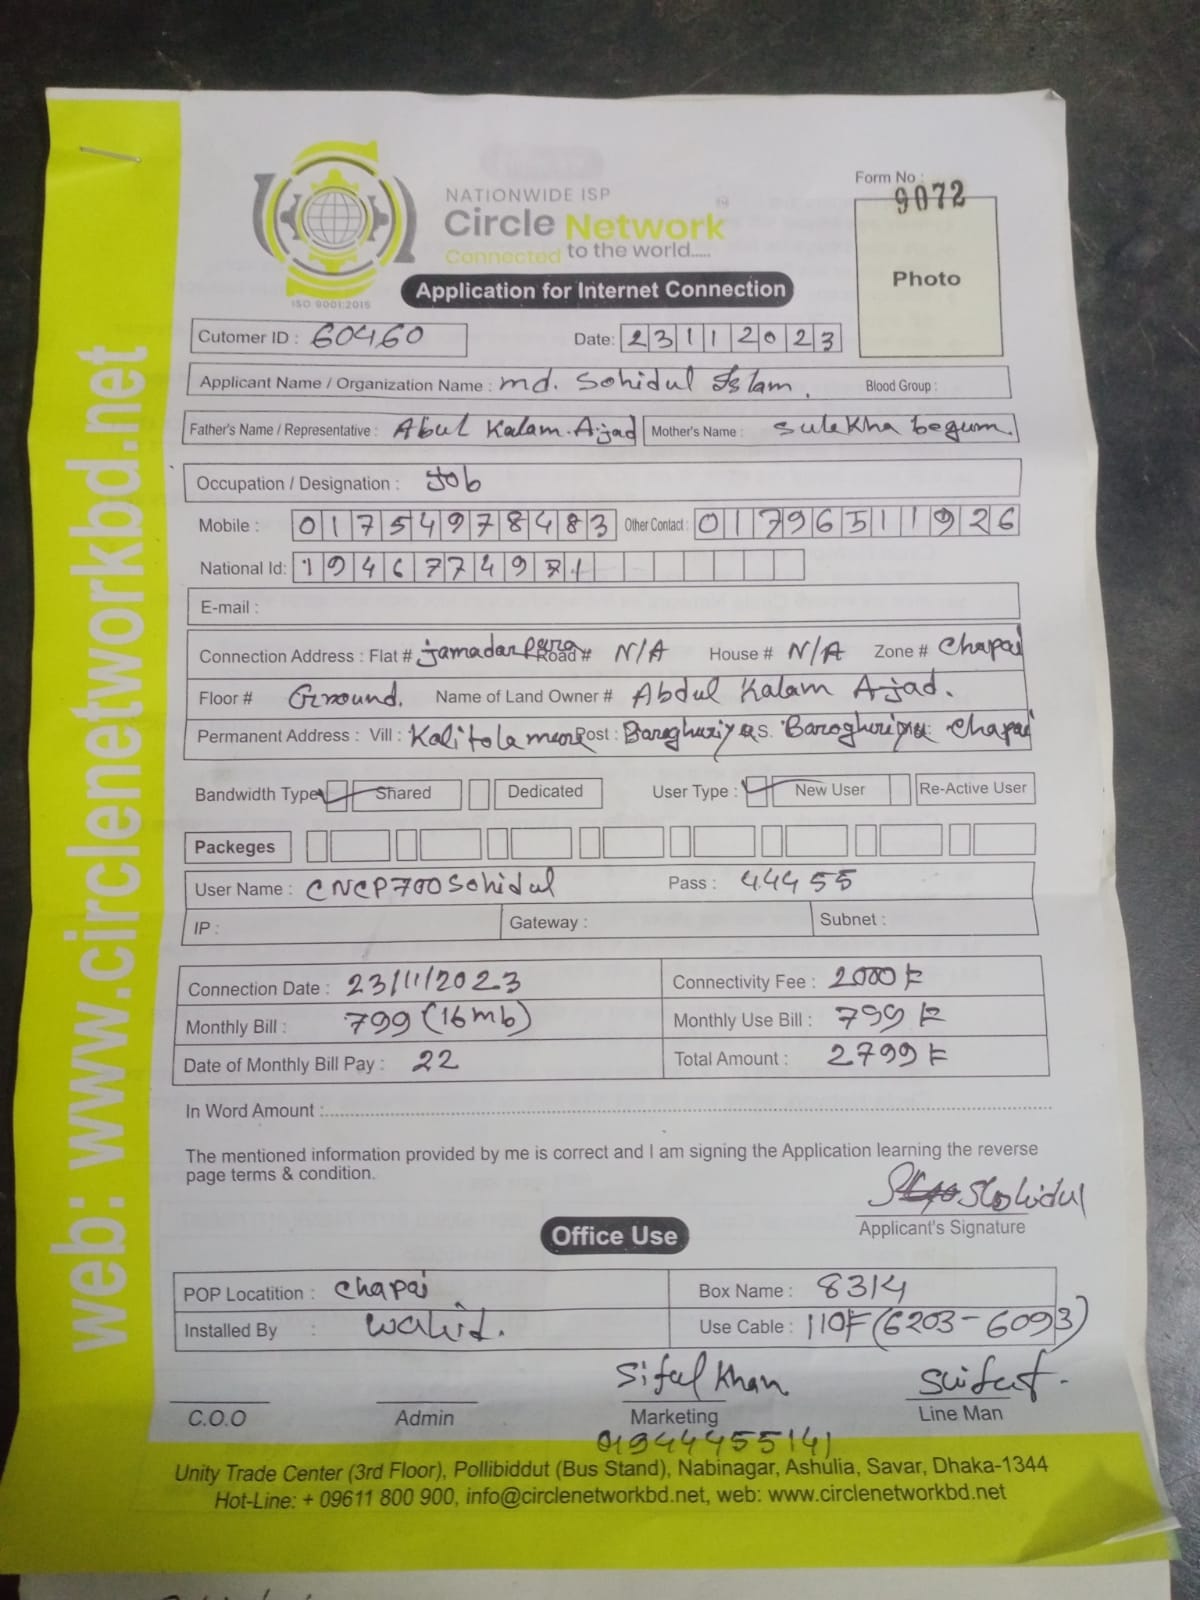 NATIONWIDE ISP
Circle Network
Connected to the world.....
ISO 9001:2015
Application for Internet Connection
Form No :
9072
Photo
Cutomer ID : 60460
Date: 23112023
Applicant Name / Organization Name : md. Sohidul Islam.
Blood Group :
Father's Name / Representative : Abul Kalam Ajad
Mother's Name : Sulekha begum.
Occupation / Designation : Job
Mobile : 01754978483
Other Contact : 01796511926
National Id: 1946774971
E-mail :
Connection Address : Flat # jamadarpara Road # N/A House # N/A Zone # Chapai
Floor # Ground. Name of Land Owner # Abdul Kalam Ajad.
Permanent Address : Vill : Kalitola more Post : Baroghuriya P.S. Baroghuriya Chapai
Bandwidth Type Shared Dedicated User Type : New User Re-Active User
Packeges
User Name : CNCP700Sohidul Pass : 44455
IP : Gateway : Subnet :
Connection Date : 23/11/2023 Connectivity Fee : 2000৳
Monthly Bill : 799 (16mb) Monthly Use Bill : 799৳
Date of Monthly Bill Pay : 22 Total Amount : 2799৳
In Word Amount :
The mentioned information provided by me is correct and I am signing the Application learning the reverse
page terms & condition.
Shohidul
Applicant's Signature
Office Use
POP Locatition : Chapai Box Name : 83/4
Installed By : Wahid. Use Cable : 110F (6203-6093)
Siful Khan
C.O.O Admin Marketing Line Man
01944455141
Unity Trade Center (3rd Floor), Pollibiddut (Bus Stand), Nabinagar, Ashulia, Savar, Dhaka-1344
Hot-Line: + 09611 800 900, info@circlenetworkbd.net, web: www.circlenetworkbd.net
web: www.circlenetworkbd.net